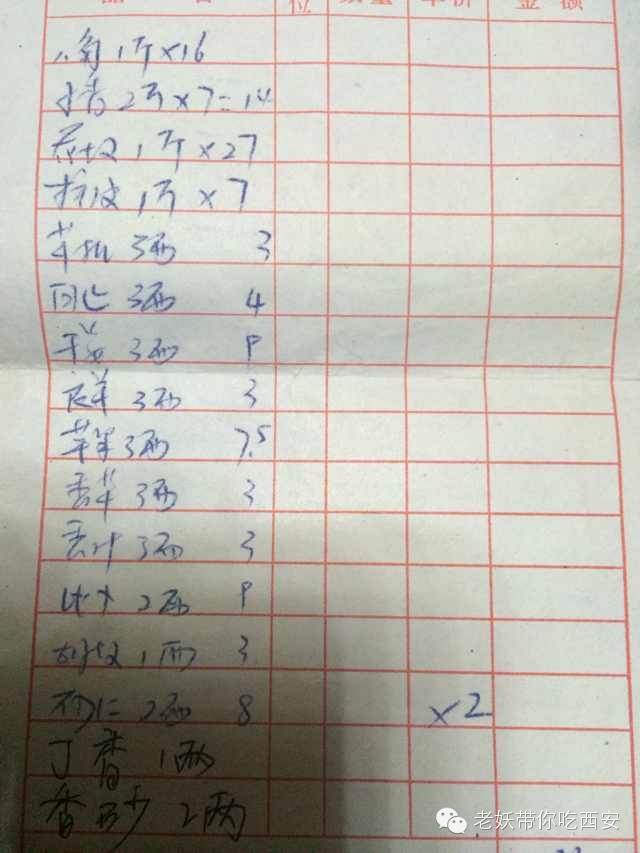 位 单价 金额
八角 1斤×16
小茴 2斤×7=14
花椒 1斤×27
桂皮 1斤×7
3两 3
白芷 3两 4
3两 9
良姜 3两 3
草果 3两 7.5
香草 3两 3
香叶 3两 3
2两 9
胡椒 1两 3
砂仁 2两 8 ×2
丁香 1两
香砂 2两
老妖带你吃西安